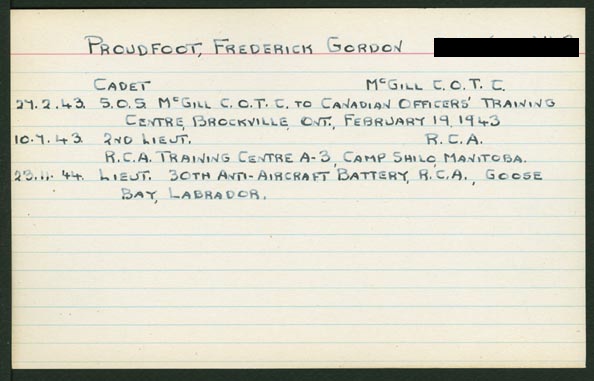 PROUDFOOT, FREDERICK GORDON
CADET McGILL C.O.T.C.
27.2.43. S.O.S. McGILL C.O.T.C. TO CANADIAN OFFICERS' TRAINING
CENTRE, BROCKVILLE, ONT., FEBRUARY 19, 1943
10.7.43. 2ND LIEUT. R.C.A.
R.C.A. TRAINING CENTRE A-3, CAMP SHILO, MANITOBA.
23.11.44. LIEUT. 30TH ANTI-AIRCRAFT BATTERY, R.C.A., GOOSE
BAY, LABRADOR.